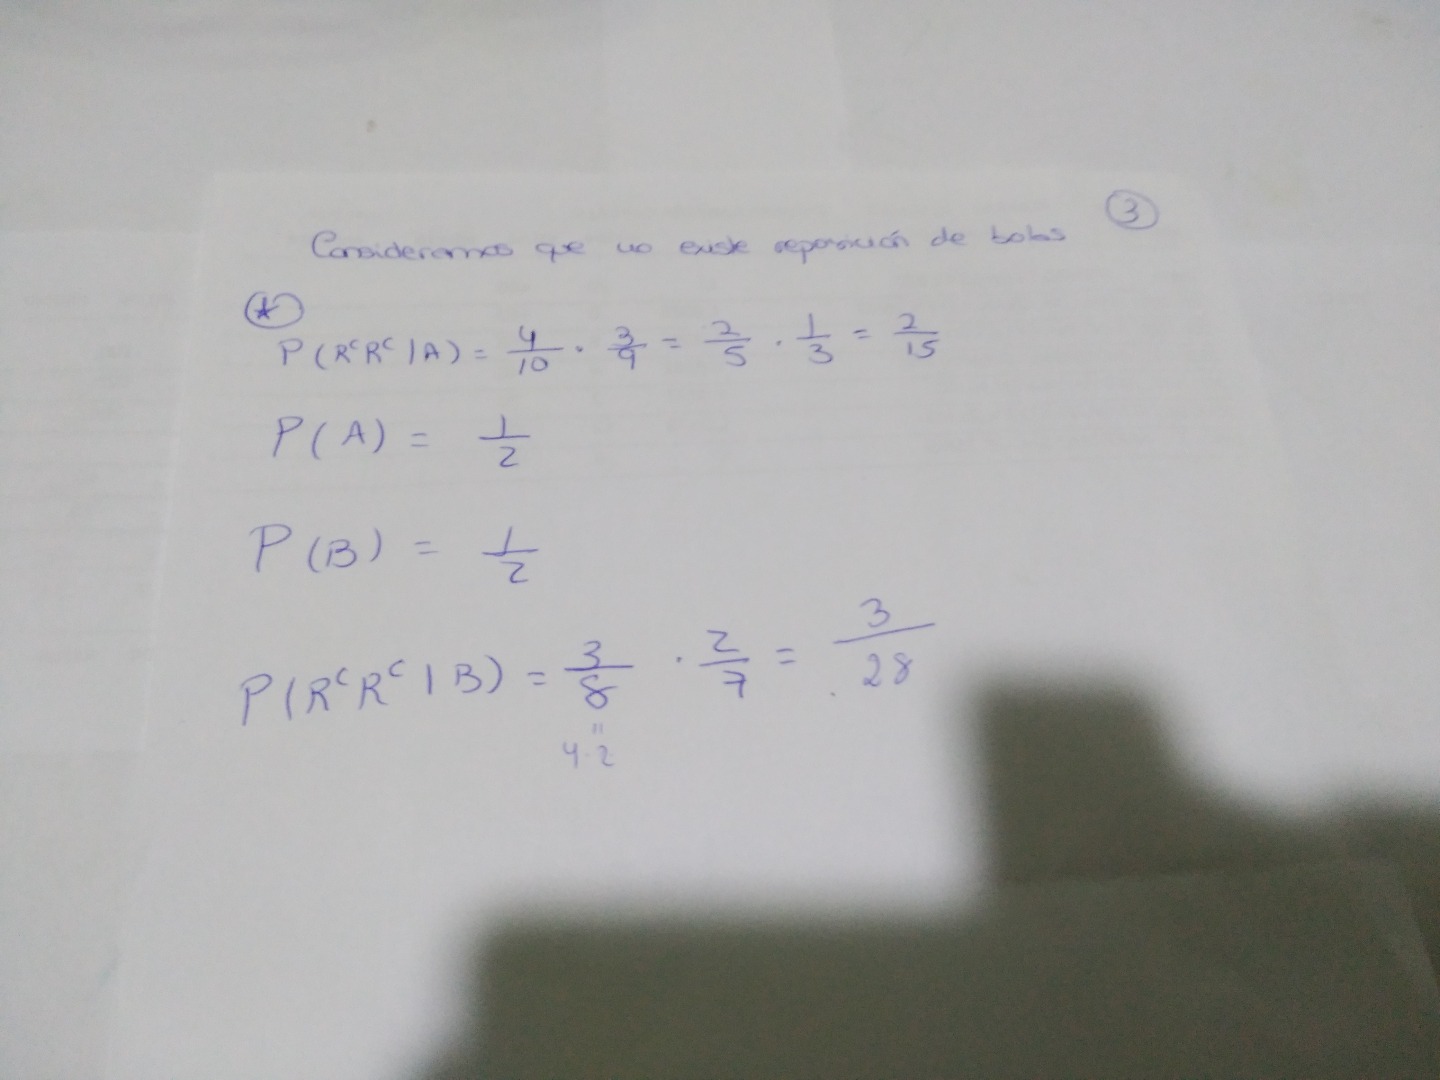 ③
Consideramos que no existe reposición de bolas
★
P(RᶜRᶜ|A) = 4/10 · 3/9 = 2/5 · 1/3 = 2/15
P(A) = 1/2
P(B) = 1/2
P(RᶜRᶜ|B) = 3/8 · 2/7 = 3/28
"
4·2